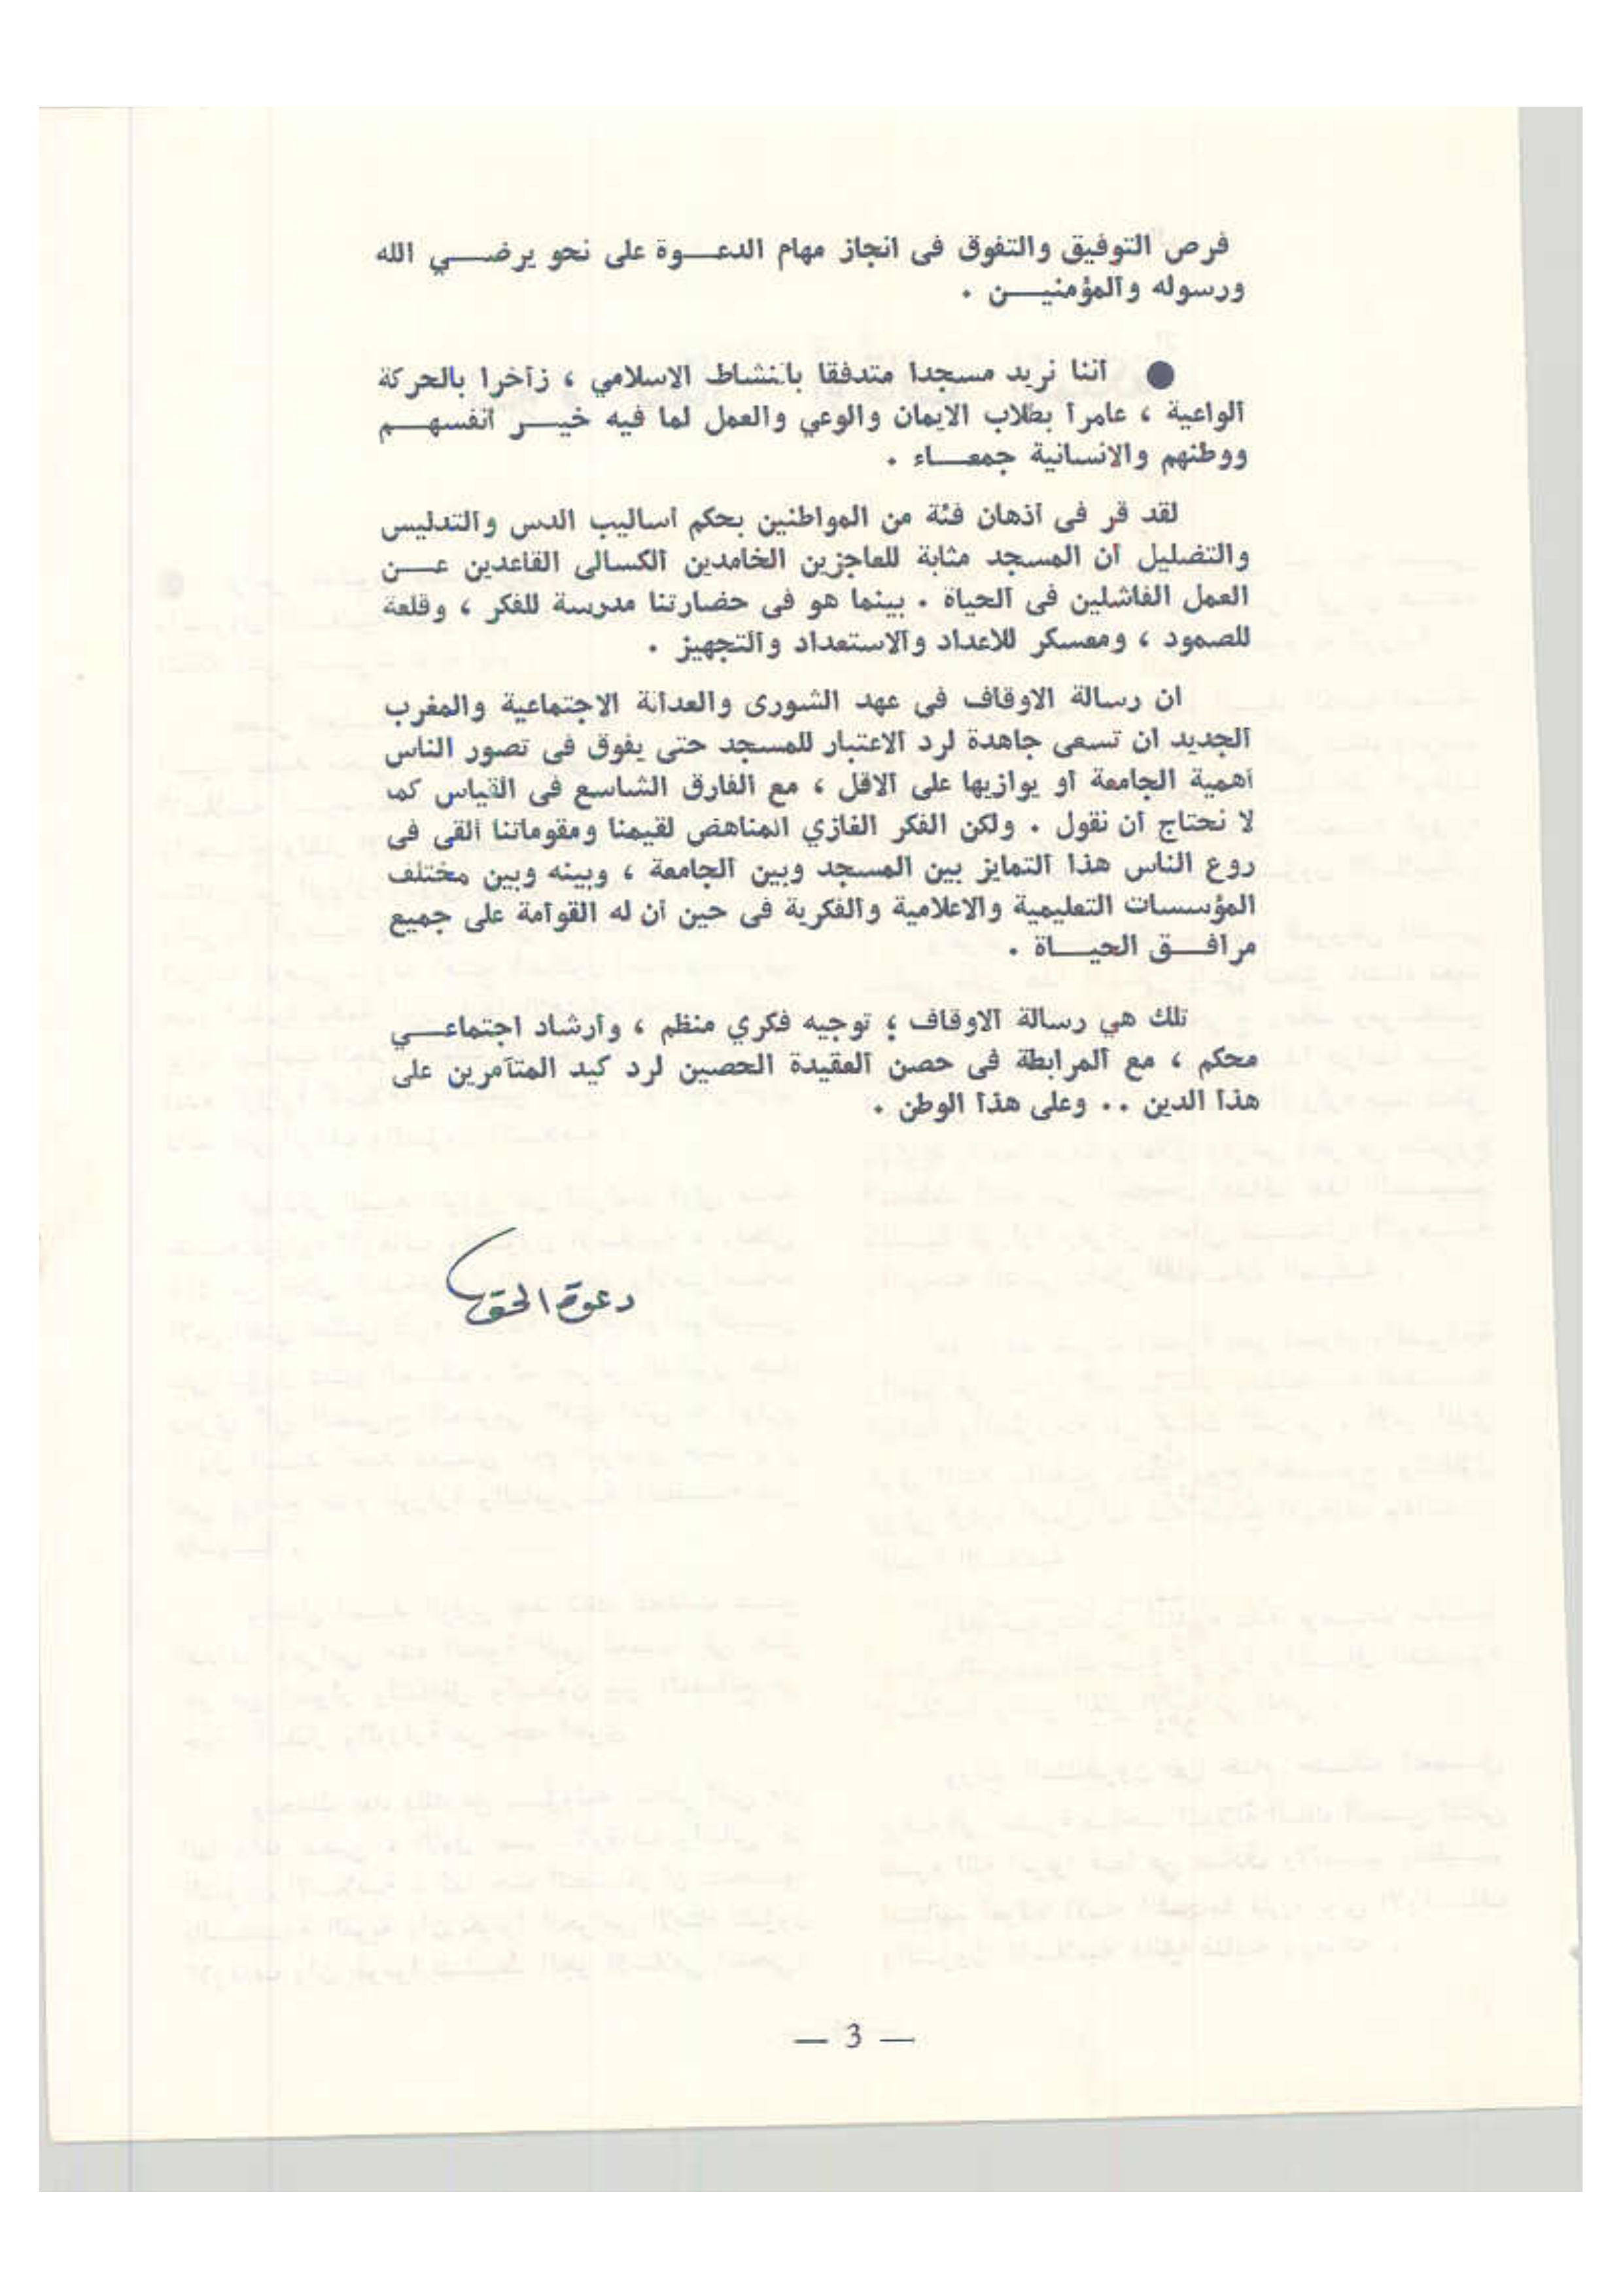 فرص التوفيق والتفوق فى انجاز مهام الدعـــوة على نحو يرضـــي الله
ورسوله والمؤمنيـــن .
● اننا نريد مسجدا متدفقا بالنشاط الاسلامي ، زاخرا بالحركة
الواعية ، عامرا بطلاب الايمان والوعي والعمل لما فيه خيـــر انفسهـــم
ووطنهم والانسانية جمعـــاء .
لقد قر فى اذهان فئة من المواطنين بحكم اساليب الدس والتدليس
والتضليل ان المسجد مثابة للعاجزين الخامدين الكسالى القاعدين عـــن
العمل الفاشلين فى الحياة . بينما هو فى حضارتنا مدرسة للفكر ، وقلعة
للصمود ، ومعسكر للاعداد والاستعداد والتجهيز .
ان رسالة الاوقاف فى عهد الشورى والعدالة الاجتماعية والمغرب
الجديد ان تسعى جاهدة لرد الاعتبار للمسجد حتى يفوق فى تصور الناس
اهمية الجامعة او يوازيها على الاقل ، مع الفارق الشاسع فى القياس كما
لا نحتاج ان نقول . ولكن الفكر الغازي المناهض لقيمنا ومقوماتنا القى فى
روع الناس هذا التمايز بين المسجد وبين الجامعة ، وبينه وبين مختلف
المؤسسات التعليمية والاعلامية والفكرية فى حين ان له القوامة على جميع
مرافـــق الحيـــاة .
تلك هي رسالة الاوقاف ؛ توجيه فكري منظم ، وارشاد اجتماعـــي
محكم ، مع المرابطة فى حصن العقيدة الحصين لرد كيد المتآمرين على
هذا الدين .. وعلى هذا الوطن .
دعوة الحق
— 3 —